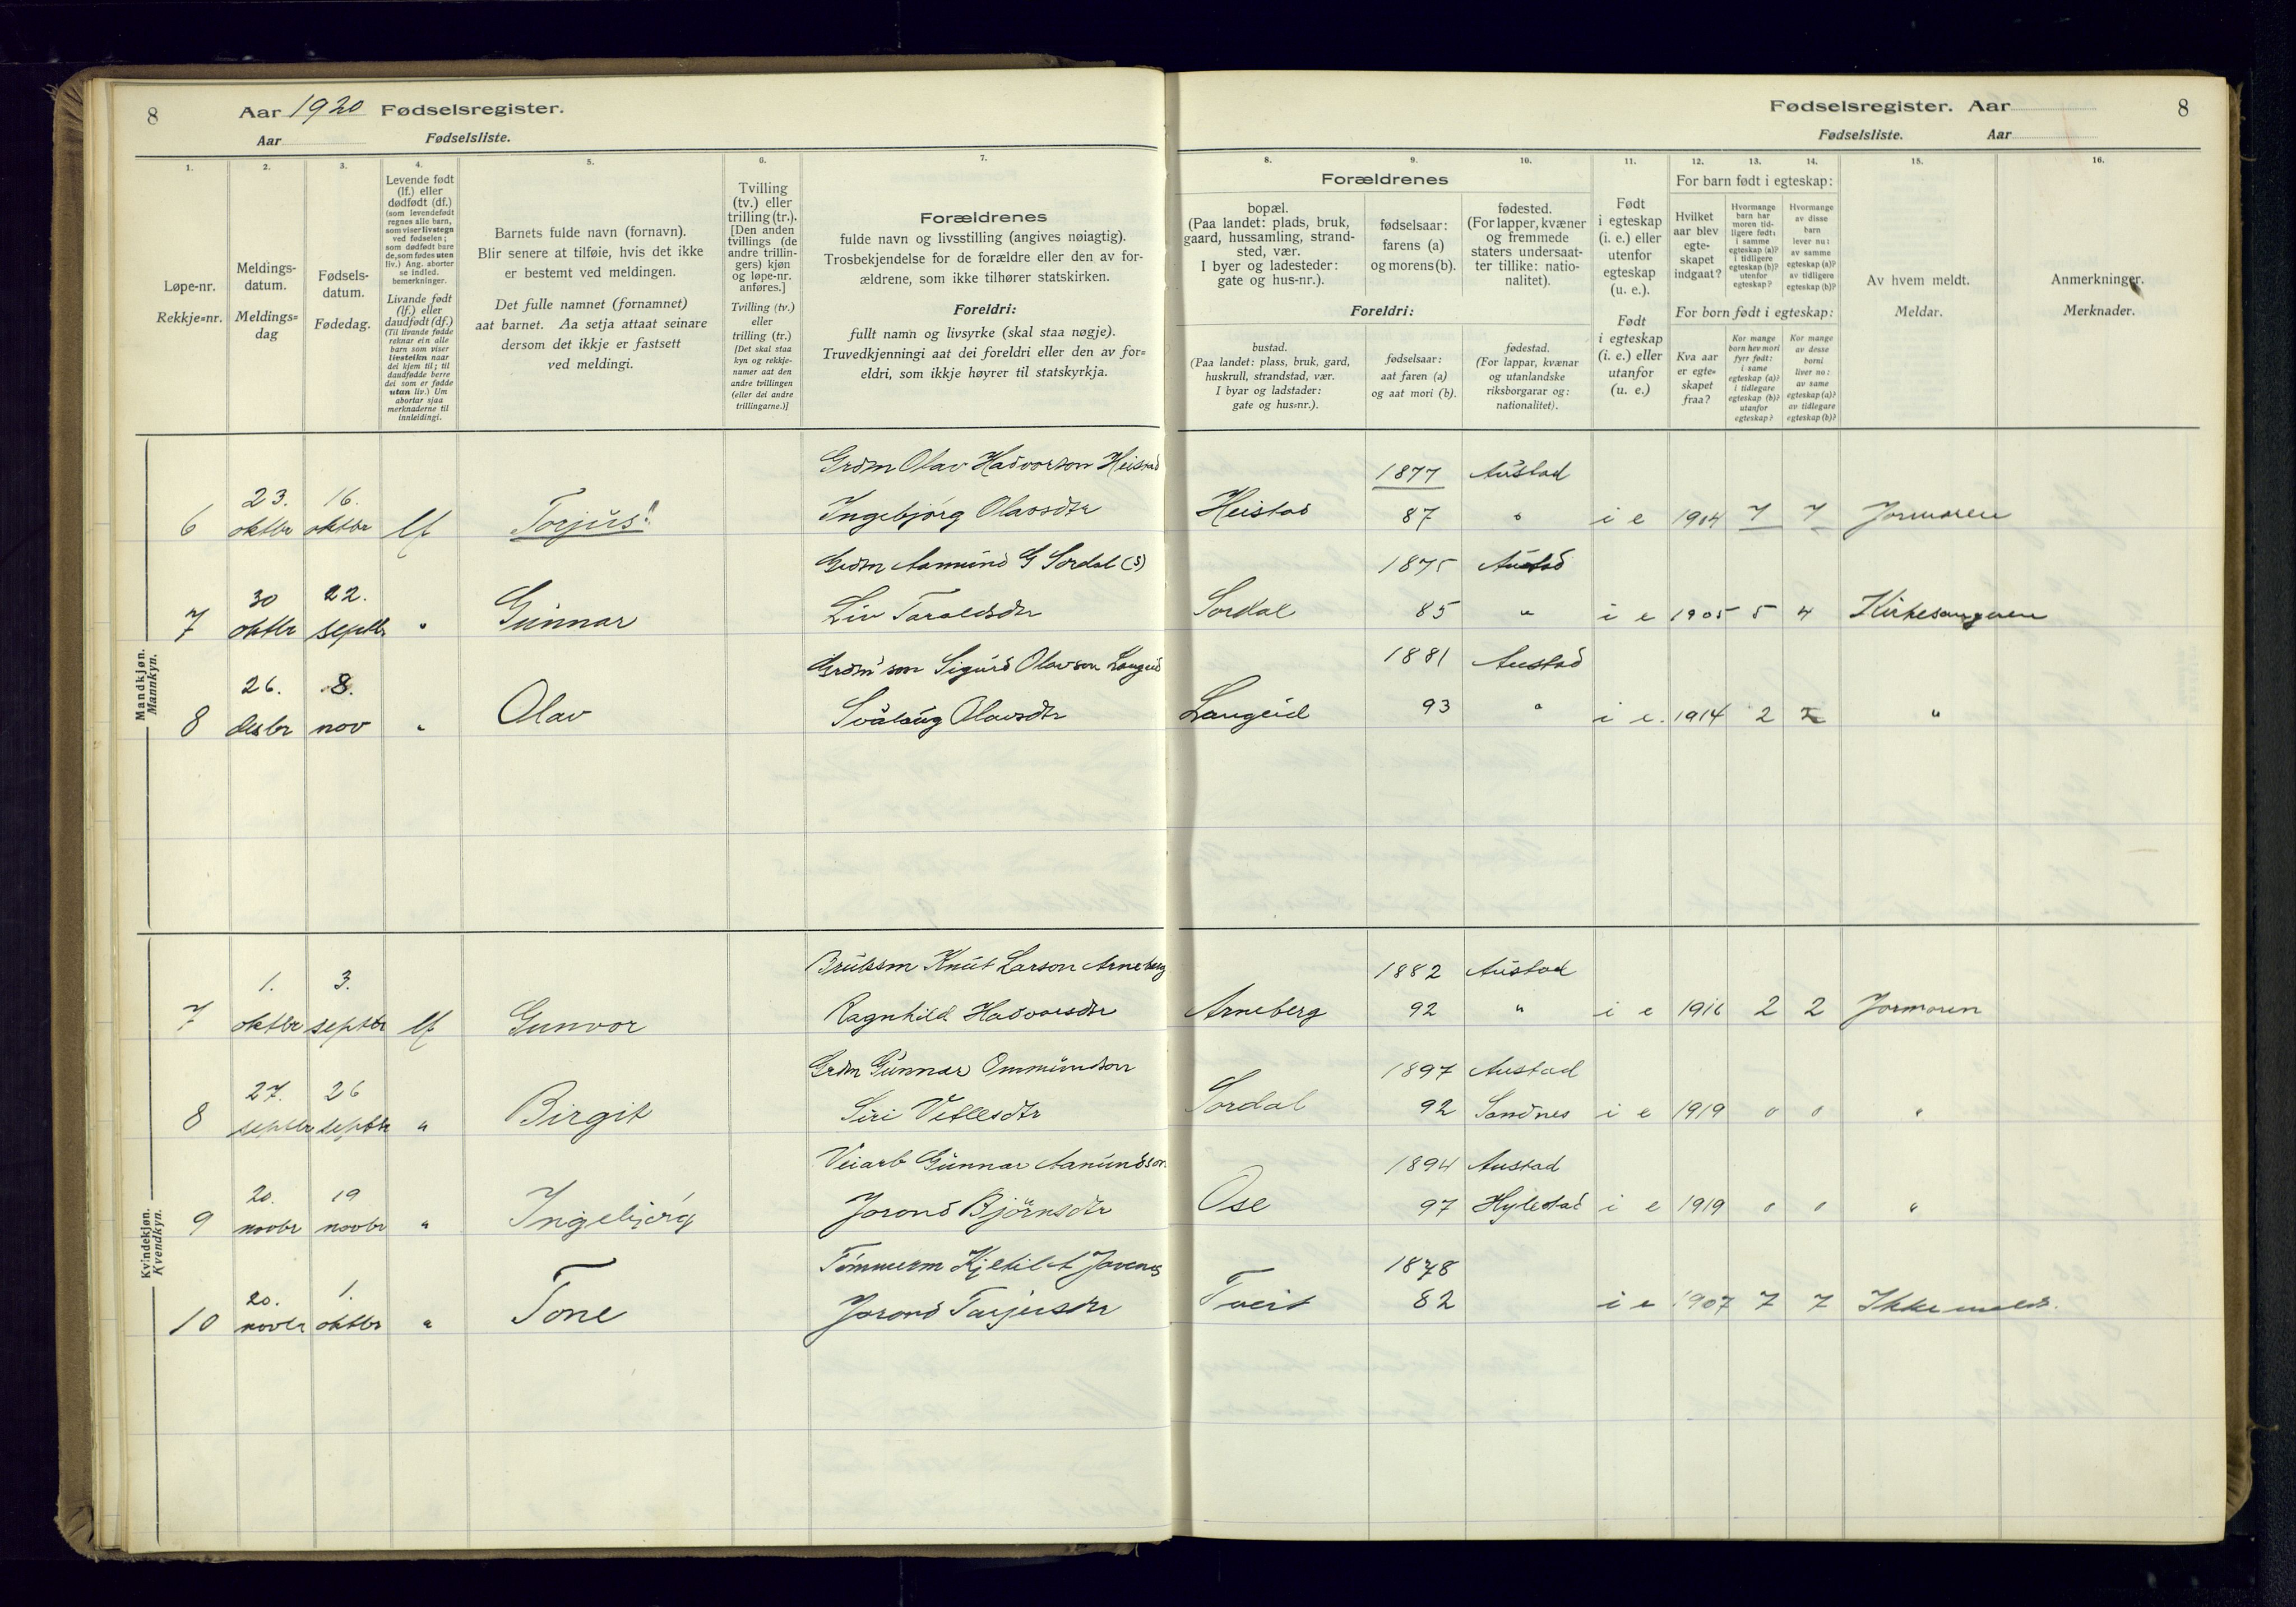 8 Aar 1920 Fødselsregister.
Aar Fødselsliste.
Fødselsregister. Aar 8
Fødselsliste. Aar
1. 2. 3. 4. 5. 6. 7. 8. 9. 10. 11. 12. 13. 14. 15. 16.
Løpe-nr.
Rekkje=nr.
Meldings-
datum.
Meldings=
dag
Fødsels-
datum.
Fødedag.
Levende født
(lf.) eller
dødfødt (df.)
(som levendefødt
regnes alle barn,
som viser livstegn
ved fødselen;
som dødfødt bare
de, som fødes uten
liv.) Ang. aborter
se indled.
bemerkninger.
Livande født
(lf.) eller
daudfødt (df.)
(Til livande fødde
reknar ein alle
barn som viser
livsteikn naar
dei kjem til; til
daudfødde berre
dei som er fødde
utan liv.) Um
abortar sjaa
merknaderne til
innleidingi.
Barnets fulde navn (fornavn).
Blir senere at tilføie, hvis det ikke
er bestemt ved meldingen.
Det fulle namnet (fornamnet)
aat barnet. Aa setja attaat seinare
dersom det ikkje er fastsett
ved meldingi.
Tvilling
(tv.) eller
trilling (tr.).
[Den anden
tvillings (de
andre trillin-
gers) kjøn
og løpe-nr.
anføres.]
Tvilling (tv.)
eller
trilling (tr.)
[Det skal staa
kyn og rekkje-
numer aat den
andre tvillingen
(eller dei andre
trillingarne.)]
Forældrenes
fulde navn og livsstilling (angives nøiagtig).
Trosbekjendelse for de forældre eller den av for-
ældrene, som ikke tilhører statskirken.
Foreldri:
fullt namn og livsyrke (skal staa nøgje).
Truvedkjenningi aat dei foreldri eller den av for=
eldri, som ikkje høyrer til statskyrkja.
Forældrenes
bopæl.
(Paa landet: plads, bruk,
gaard, hussamling, strand-
sted, vær.
I byer og ladesteder:
gate og hus-nr.).
fødselsaar:
farens (a)
og morens (b).
fødested.
(For lapper, kvæner
og fremmede
staters undersaat-
ter tillike: natio-
nalitet).
Foreldri:
bustad.
(Paa landet: plass, bruk, gard,
huskrull, strandstad, vær.
I byar og ladstader:
gate og hus=nr.).
fødselsaar:
aat faren (a)
og aat mori (b).
fødestad.
(For lappar, kvænar
og utanlandske
riksborgarar og:
nationalitet).
Født
i egteskap
(i. e.) eller
utenfor
egteskap
(u. e.).
Født
i egteskap
(i. e.) eller
utanfor
(u. e.)
For barn født i egteskap:
Hvilket
aar blev
egte-
skapet
indgaat?
Hvormange
barn har
moren tid-
ligere født:
i samme
egteskap (a)?
i tidligere
egteskap (b)?
utenfor
egteskap?
Hvormange
av disse
barn
lever nu:
av samme
egteskap (a)?
av tidligere
egteskap (b)?
For born født i egteskap:
Kva aar
er egte=
skapet
fraa?
Kor mange
born hev mori
fyrr født:
i same
egteskap (a)?
i tidlegare
egteskap (b)?
utanfor
egteskap?
Kor mange
av desse
borni
liver no:
av same
egteskap (a)?
av tidlegare
egteskap (b)?
Av hvem meldt.
Meldar.
Anmerkninger.
Merknader.
Mandkjøn.
Mannkyn.
Grdm Olav Hadvorson Heistad 1877 Austad
6 23. oktbr 16. oktbr lf Torjus Ingebjørg Olavsdtr Heistad 87 " i e 1904 7 7 Jormoren
Grdm Aamund G Sordal (s) 1875 Austad
7 30 oktbr 22. septbr " Gunnar Liv Taraldsdtr Sordal 85 " i e 1905 5 4 Kirkesangeren
Grdm'son Sigurd Olavson Langeid 1881 Austad
8 26. desbr 8. nov " Olav Svålaug Olavsdtr Langeid 93 " i e. 1914 2 2 "
Kvindekjøn.
Kvendkyn.
Bruksm Knut Larson Arneberg 1882 Austad
7 1. oktbr 3. septbr lf Gunvor Ragnhild Hadvorsdtr Arneberg 92 " i e 1916 2 2 Jormoren
Grdm Gunnar Ommundson 1897 Austad
8 27. septbr 26 septbr " Birgit Siri Vetlesdtr Sordal 92 Sandnes i e 1919 0 0 "
Veiarb Gunnar Aanundson 1894 Austad
9 20. novbr 19 novbr " Ingebjørg Jorond Bjørnsdtr Ose 97 Hylestad i e 1919 0 0 "
Tømmerm Kjetil Jovenes 1878
10 20. novbr 1. oktbr " Tone Jorond Tarjeisdtr Tveit 82 i e 1907 7 7 Ikke meldt.